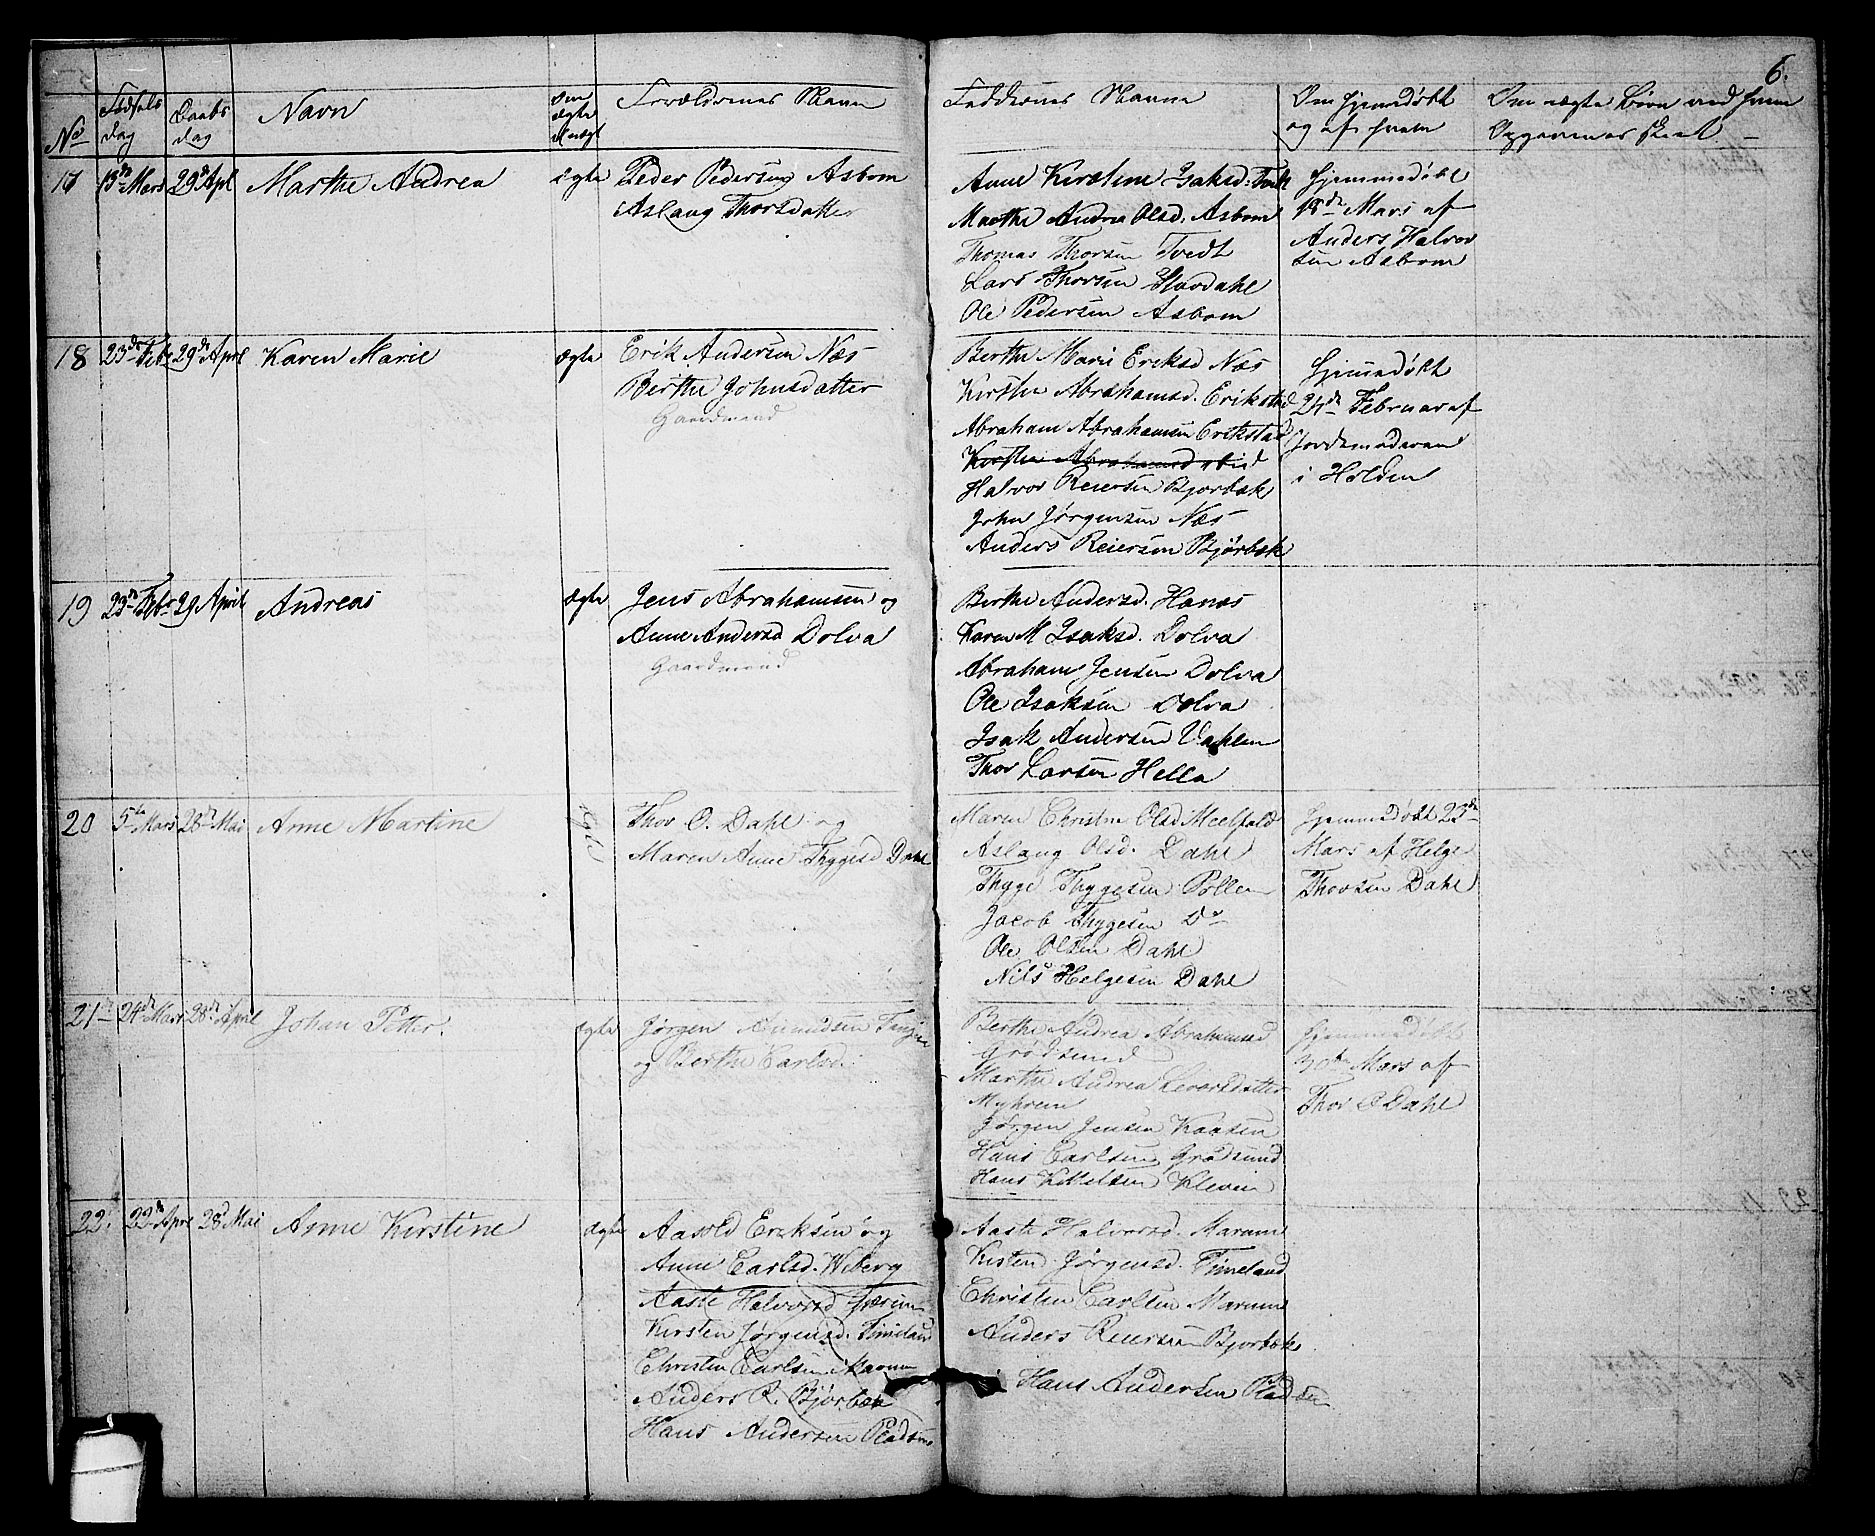 6.
No
Fødsels
dag
Daabs
dag
Navn
Om
ægte
uægt
Forældrenes Navne
Faddernes Navne
Om hjemmedøbt
og af hvem
Om uægte Børn ved hvem
Opgavernes skeet. –
17
13de Mars
29de Apl
Marthe Andrea
ægte
Peder Pedersen Asbom
Aslaug Thorsdatter
Anne Kirstine Isaksd. Tvedt
Marthe Andrea Olsd. Asbom
Thomas Thorsen Tvedt
Lars Thorsen Hovdahl
Ole Pedersen Asbom
Hjemmedøbt
18de Mars af
Anders Halvor
sen Asbom
18
23de Febr
29de April
Karen Marie
ægte
Erik Andersen Næs
Berthe Johnsdatter
Gaardmand
Berthe Marie Eriksd Næs
Kirsten Abrahamsd. Erikstad
Abraham Abrahamsen Erikstad
Kirsthe Abrahamsd ibid
Halvor Reiersen Bjorbæk
John Jørgensen Næs
Anders Reiersen Bjørbæk
Hjemmedøbt
24de Februar af
Jordemoderen
i Holden
19
23de Febr
29 April
Andreas
ægte
Jens Abrahamsen og
Anne Andersd Dolva
Gaardmand
Berthe Andersd. Hanæs
Karen M Isaksd. Dolva
Abraham Jensen Dolva
Ole Isaksen Dolva
Isak Andersen Dahlen
Thor Larsen Hella
20
5te Mars
28de Mai
Anne Martine
ægte
Thor O. Dahl og
Maren Anne Thygesd Dahl
Maren Christine Olsd Meelfald
Aslaug Olsd. Dahl
Thyge Thygesen Pollen
Jacob Thygesen Do
Ole Olsen Dahl
Nils Helgesen Dahl
Hjemmedøbt 23de
Mars af Helge
Thorsen Dahl
21
24de Mars
28de April
Johan Petter.
ægte
Jørgen Amundsen
og Berthe Carlsd.
Berthe Andrea Abrahamsd
Grødsund
Marthe Andrea Levorsdatter
Myhren
Jørgen Jensen Kaasen
Hans Carlsen Grødsund
Hans Kittelsen Kleven
Hjemmedøbt
30te Mars af
Thor O Dahl
22
22de Apri
28de Mai
Anne Kirstine
ægte
Aasold Eriksen og
Anne Carlsd. Wiberg
Aaste Halvorsd
Kirsten Jørgensd. Timeland
Christen Carlsen Marum
Anders R. Bjørbæk
Hans Andersen Pladsen
Aaste Halvorsd. Marum
Kirsten Jørgensd. Timeland
Christen Carlsen Marum
Anders Reiersen Bjorbæk
Hans Andersen Pladsen